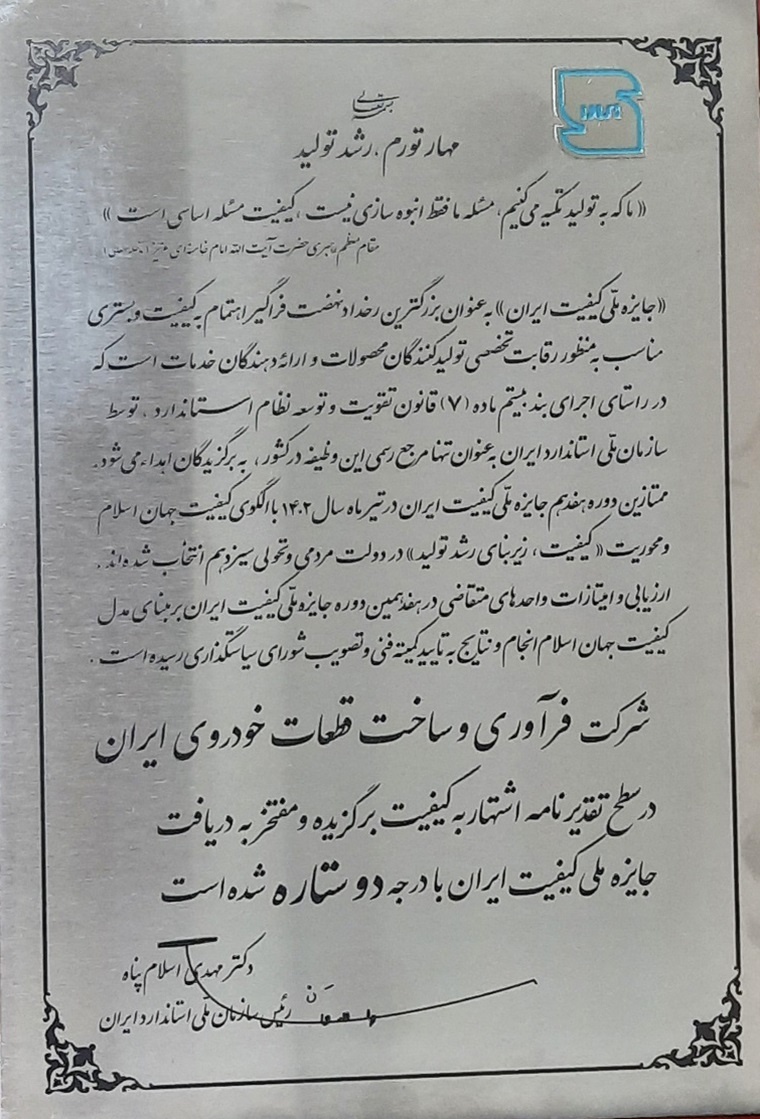 بسمه تعالی
مهار تورم، رشد تولید
«ما که به تولید تکیه می‌کنیم، مسئله ما فقط انبوه سازی نیست، کیفیت مسئله اساسی است»
مقام معظم رهبری حضرت آیت الله امام خامنه‌ای عزیز
«جایزه ملّی کیفیت ایران» به عنوان بزرگترین رخداد نهضت فراگیر اهتمام به کیفیت و بستری
مناسب به منظور رقابت تخصصی تولیدکنندگان محصولات و ارائه دهندگان خدمات است که
در راستای اجرای بند بیستم ماده (۷) قانون تقویت و توسعه نظام استاندارد، توسط
سازمان ملّی استاندارد ایران به عنوان تنها مرجع رسمی این وظیفه در کشور، به برگزیدگان اهداء می‌شود.
ممتازین دوره هفدهم جایزه ملّی کیفیت ایران در تیر ماه سال ۱۴۰۲ با الگوی کیفیت جهان اسلام
و محوریت «کیفیت، زیربنای رشد تولید» در دولت مردمی و تحولی سیزدهم انتخاب شده‌اند.
ارزیابی و امتیازات واحدهای متقاضی در هفدهمین دوره جایزه ملّی کیفیت ایران بر مبنای مدل
کیفیت جهان اسلام انجام و نتایج به تایید کمیته فنی و تصویب شورای سیاستگذاری رسیده است.
شرکت فرآوری و ساخت قطعات خودروی ایران
در سطح تقدیرنامه اشتهار به کیفیت برگزیده و مفتخر به دریافت
جایزه ملی کیفیت ایران با درجه دو ستاره شده است
دکتر مهدی اسلام پناه
رئیس سازمان ملّی استاندارد ایران